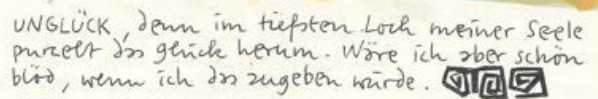 UNGLÜCK, denn im tiefsten Loch meiner Seele
purzelt das glück herum. Wäre ich aber schön
blöd, wenn ich das zugeben würde.